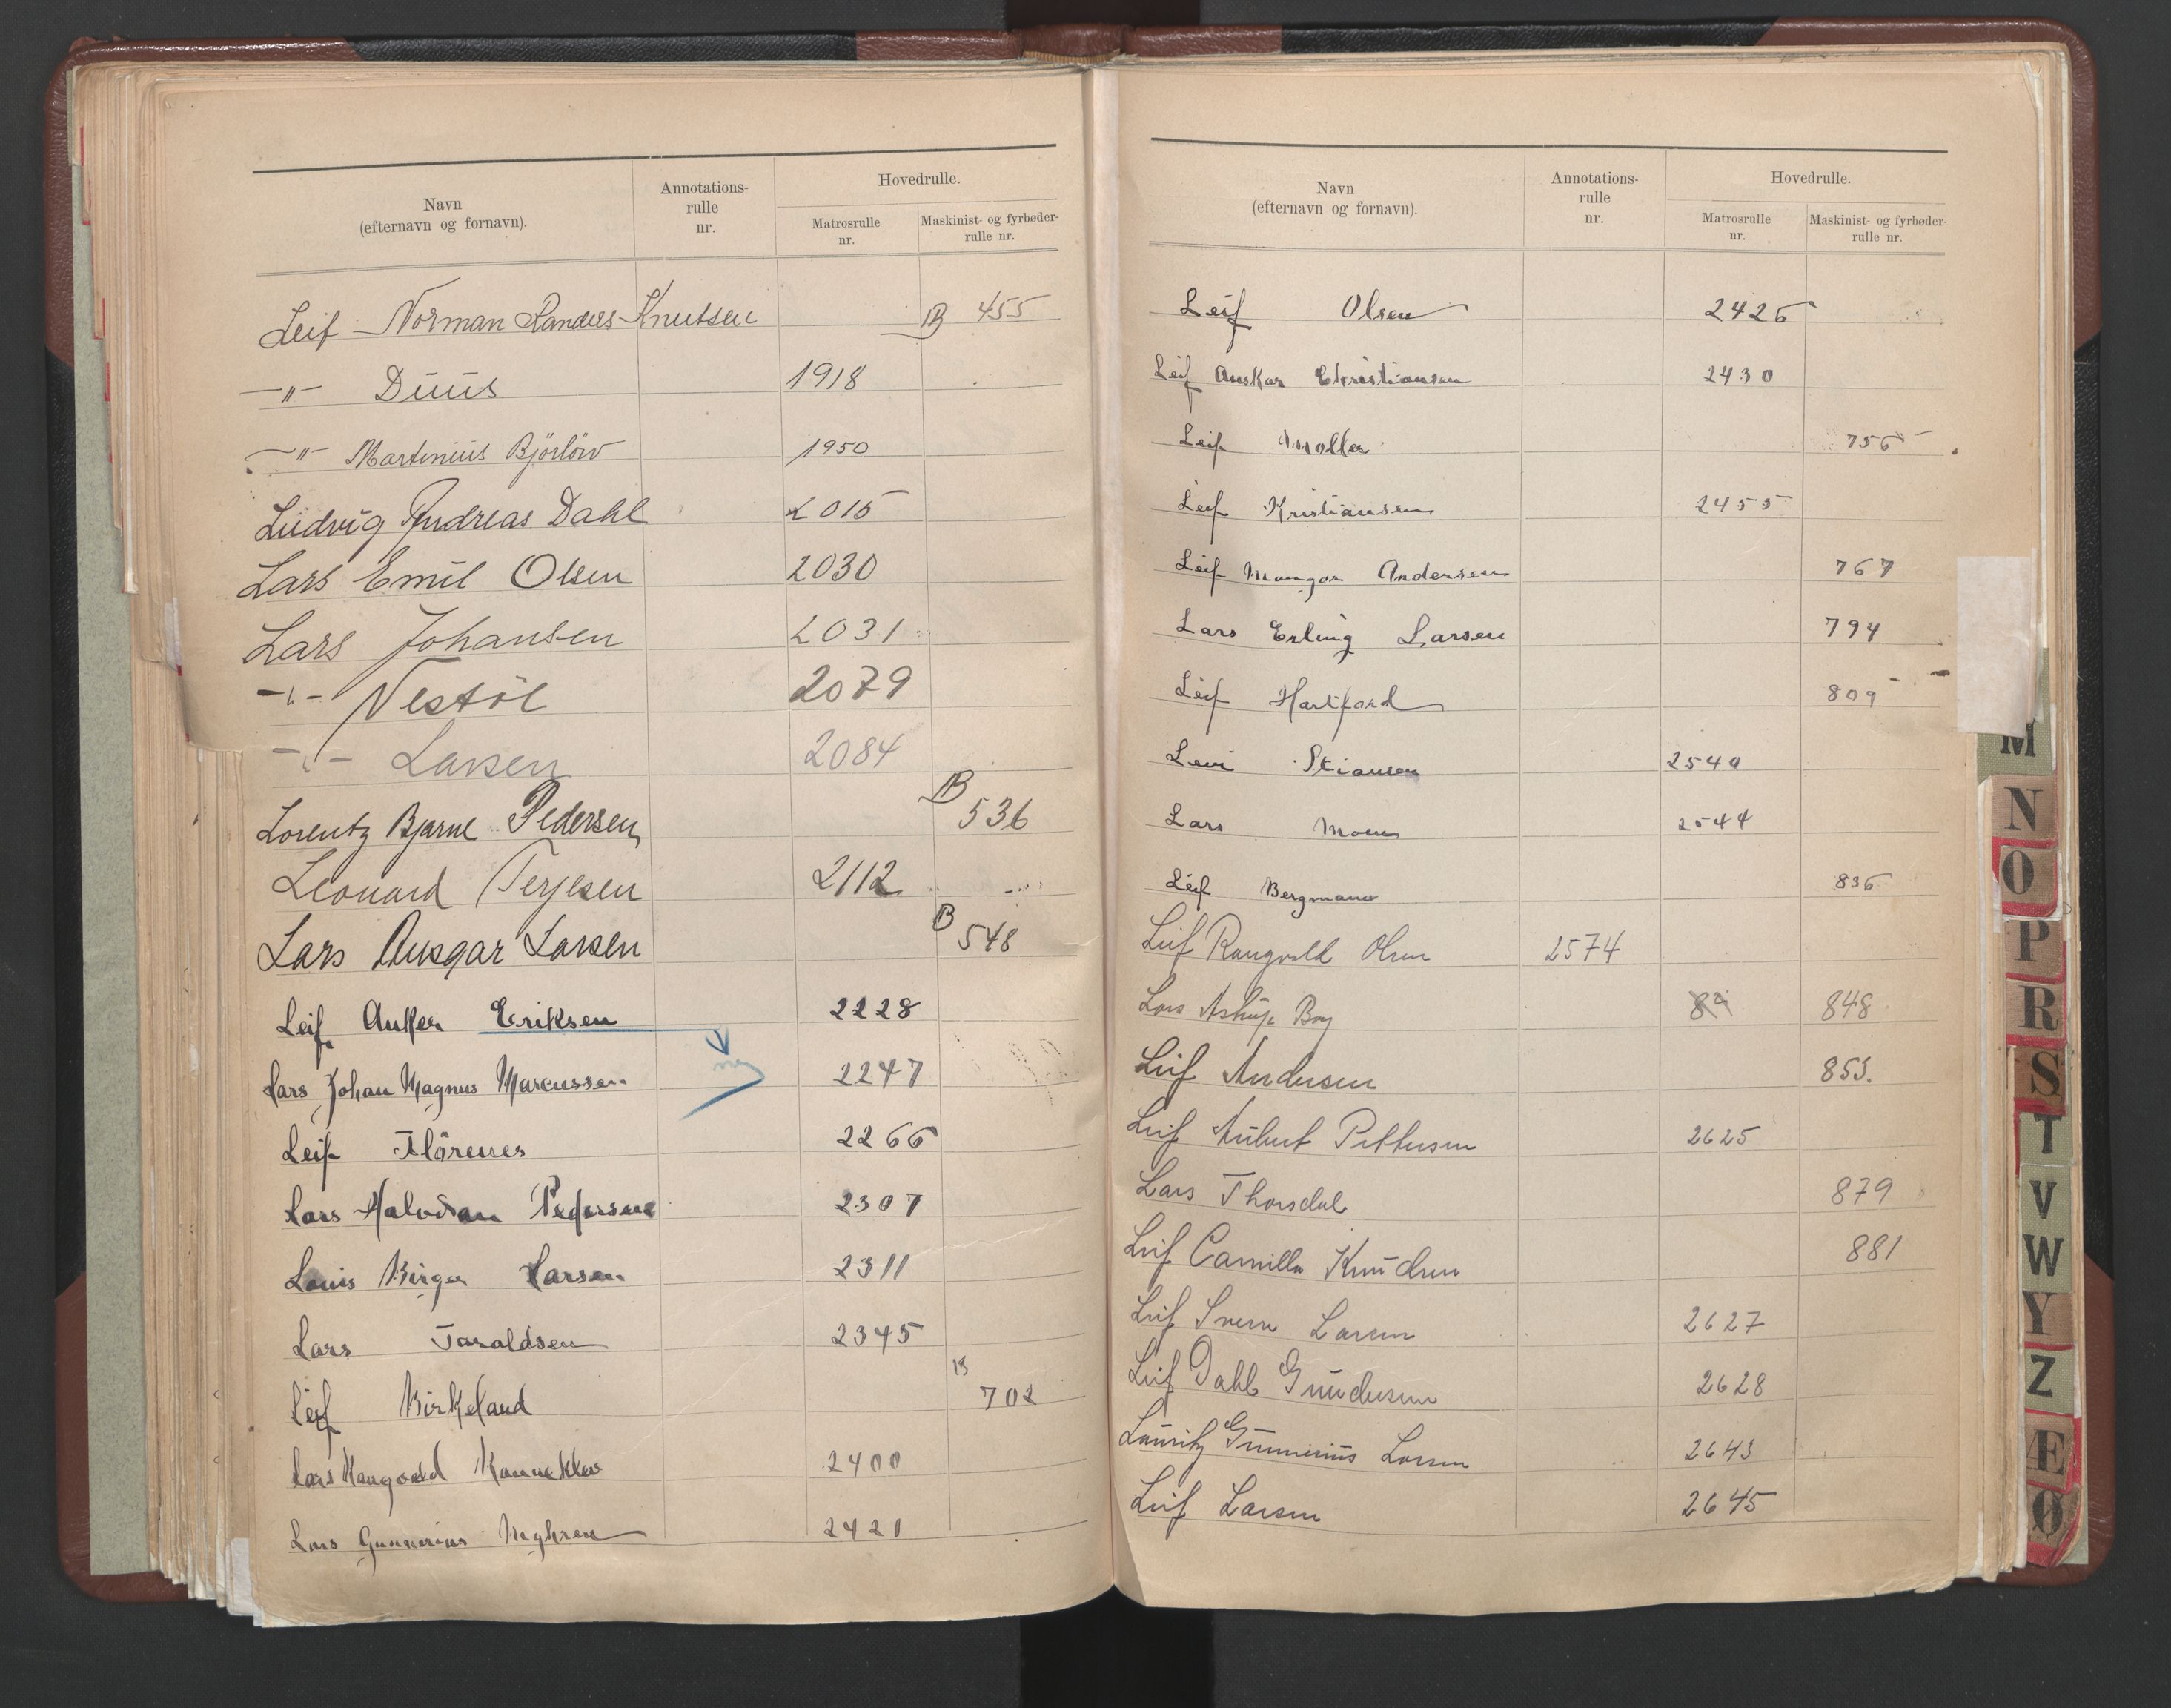 Navn
(efternavn og fornavn).
Annotations-
rulle
nr.
Hovedrulle.
Matrosrulle
nr.
Maskinist- og fyrbøder-
rulle nr.
Leif Norman Randers Knutsen B 455
-"- Duus 1918
-"- Martinius Björlöw 1950
Ludvig Andreas Dahl 2015
Lars Emil Olsen 2030
Lars Johansen 2031
-"- Nestöl 2079
-"- Larsen 2084
Lorentz Bjarne Pedersen B 536
Leonard Terjesen 2112
Lars Ansgar Larsen B 548
Leif Anker Eriksen 2228
Lars Johan Magnus Marcussen 2247
Leif Flörenes 2266
Lars Halvdan Pedersen 2307
Louis Birger Larsen 2311
Lars Taraldsen 2345
Leif Birkeland B 702
Lars Rangvald 2400
Lars Gunnerius 2421
Navn
(efternavn og fornavn).
Annotations-
rulle
nr.
Hovedrulle.
Matrosrulle
nr.
Maskinist- og fyrbøder-
rulle nr.
Leif Olsen 2426
Leif Anskar Christiansen 2430
Leif Møller 756
Leif Kristiansen 2455
Leif Mangor Andersen 767
Lars Erling Larsen 794
Leif Hartford 809
Levi Stiansen 2540
Lars Moen 2544
Leif Bergmann 836
Leif Rangvald Olsen 2574
Lars Astrup Boy 848
Leif Andersen 853.
Leif Aubert Pettersen 2625
Lars Thorsdal 879
Leif Camillo Knudsen 881
Leif Sverre Larsen 2627
Leif Dahl Gundersen 2628
Lauritz Gunnerius Larsen 2643
Leif Larsen 2645
M
N
O
P
R
S
T
V
W
Y
Z
Æ
Ø